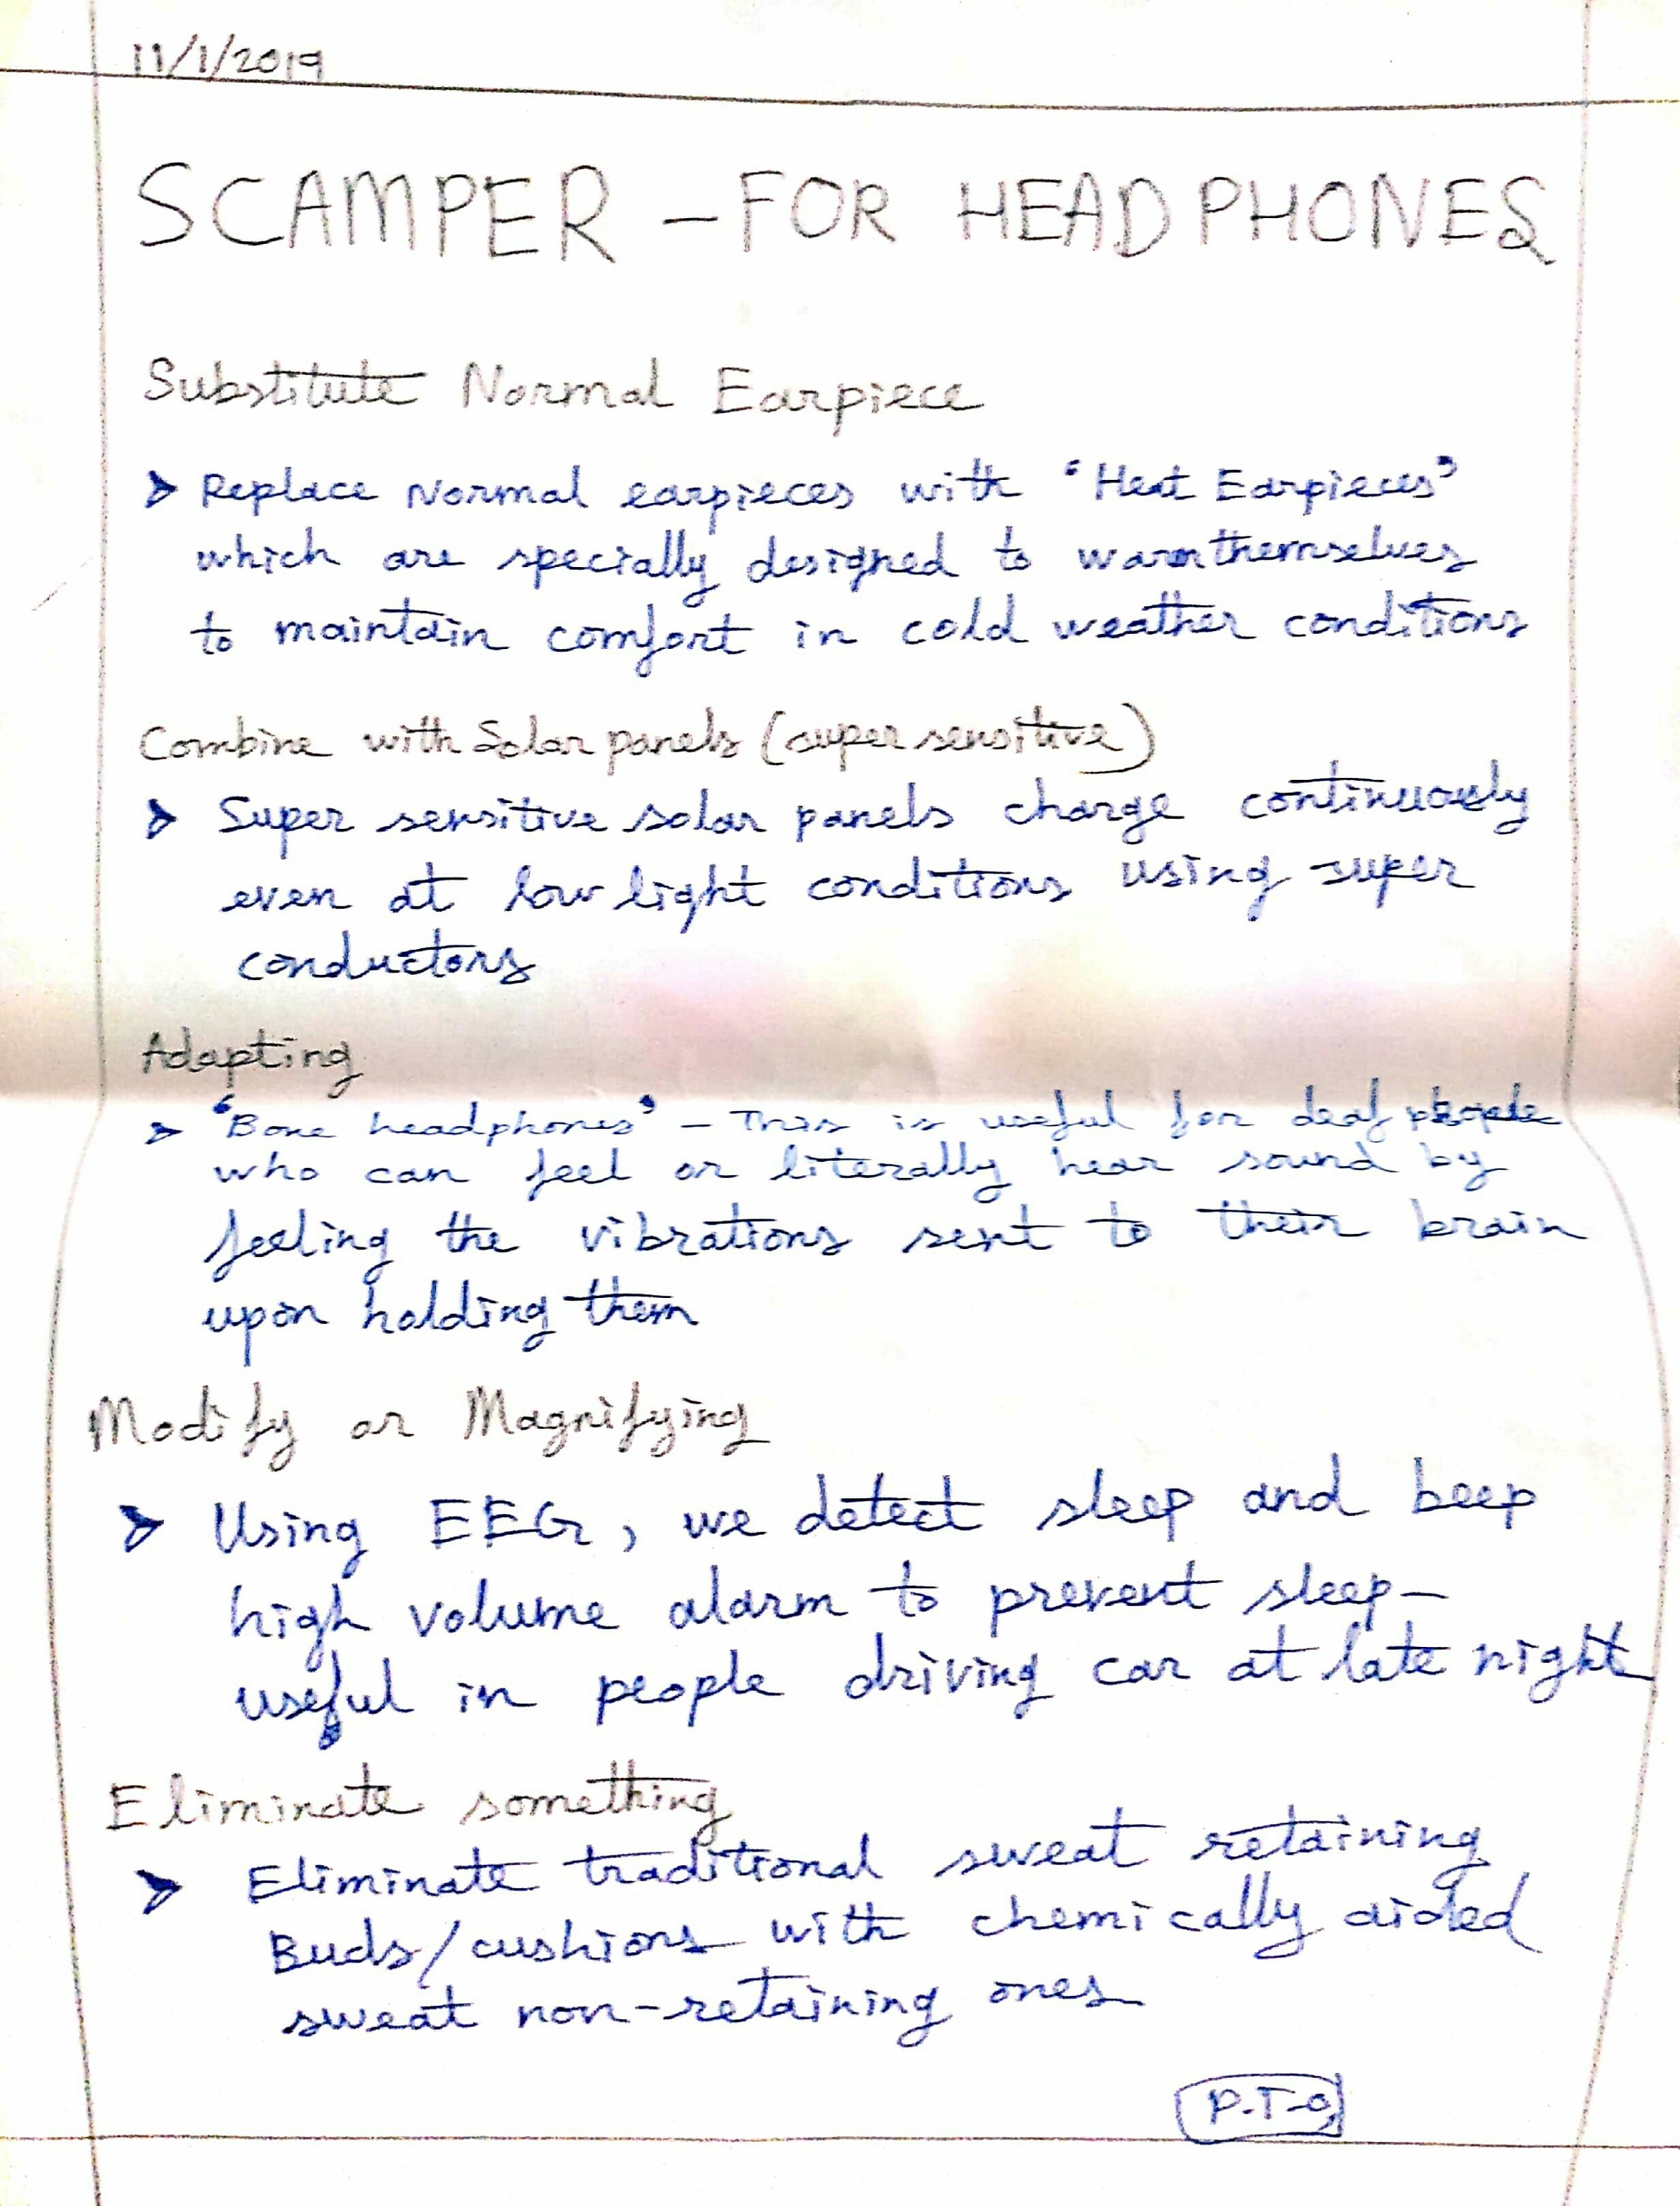 11/1/2019
SCAMPER - FOR HEADPHONES
Substitute Normal Earpiece
➤ Replace Normal earpieces with 'Heat Earpieces'
which are specially designed to warm themselves
to maintain comfort in cold weather conditions
Combine with Solar panels (super sensitive)
➤ Super sensitive solar panels charge continuously
even at low light conditions using super
conductors
Adapting
➤ 'Bone headphones' - This is useful for deaf people
who can feel or literally hear sound by
feeling the vibrations sent to their brain
upon holding them
Modify or Magnifying
➤ Using EEG, we detect sleep and beep
high volume alarm to prevent sleep-
useful in people driving car at late night
Eliminate something
➤ Eliminate traditional sweat retaining
Buds/cushions with chemically aided
sweat non-retaining ones
P.T.O